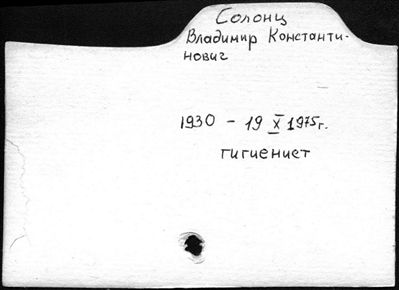 Солонц
Владимир Константи-
нович
1930 - 19 X 1975г.
гигиенист